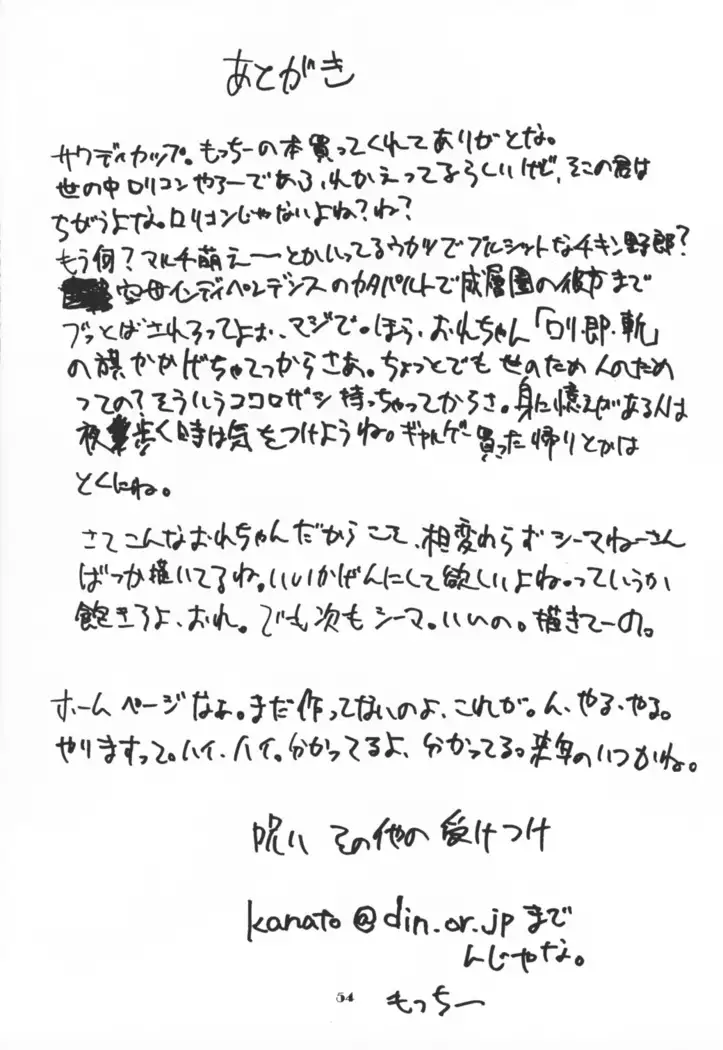 あとがき
サウディカップ。もっちーの本買ってくれてありがとな。
世の中ロリコンやろーであふれかえってるらしいけど、そこの君は
ちがうよな。ロリコンじゃないよね?ね?
もう何?マルチ萌えーとかいってるウカツでブルシットなチキン野郎?
空母インディペンデンスのカタパルトで成層圏の彼方まで
ブッとばされろってよぉ、マジで。ほら、おれちゃん「ロリ・即・斬」
の旗かかげちゃてっからさあ。ちょっとでも世のため人のため
つての?そういうココロザシ持っちゃってからさ。身に憶えがある人は
夜歩く時は気をつけようね。ギャルゲー買った帰りとかは
とくにね。
さてこんなおれちゃんだからこそ、相変わらずシーマねーさん
ばっか描いてるね。いいかげんにして欲しいよね。っていうか
飽きろよ、おれ。でも次もシーマ。いいの。描きてーの。
ホームページなぁ。まだ作ってないのよ、これが。ん、やる、やる。
やりますって。ハイ、ハイ。分かってるよ、分かってる。来年のいつかね。
呪い その他の受けつけ
kanato@din.or.jpまで
んじゃな。
54 もっちー